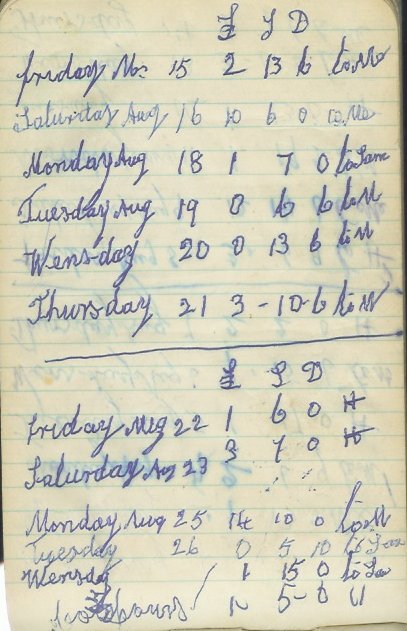 £ S D
Friday 15 2 13 6 to M
Saturday Aug 16 10 6 0 to Me
Monday Aug 18 1 7 0 to Sam
Tuesday Aug 19 0 6 6 to M
Wensday 20 0 13 6 to M
Thursday 21 3 - 10 - 6 to M
£ S D
Friday Aug 22 1 6 0 H
Saturday Ag 23 3 7 0 H
Monday Aug 25 14 10 0 to M
Tuesday 26 0 5 10 to Sam
Wensday 1 15 0 to Sa
5 0